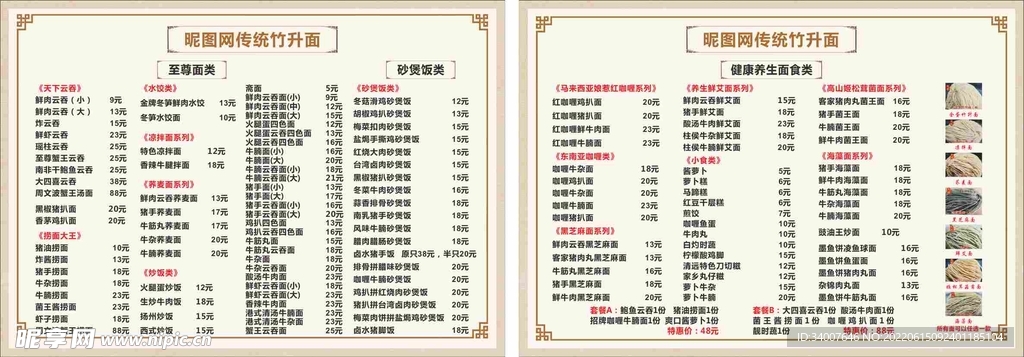 昵图网传统竹升面
至尊面类
砂煲饭类
《天下云吞》
鲜肉云吞（小） 9元
鲜肉云吞（大） 13元
炸云吞 15元
鲜虾云吞 23元
瑶柱云吞 25元
至尊蟹王云吞 25元
南非干鲍鱼云吞 25元
大四喜云吞 38元
周文波蟹王汤面 88元
黑椒猪扒面 20元
香茅鸡扒面 20元
《捞面大王》
猪油捞面 10元
炸酱捞面 13元
猪手捞面 18元
牛杂捞面 18元
牛腩捞面 23元
菌王酱捞面 18元
虾子捞面 18元
88元
《水饺类》
金牌冬笋鲜肉水饺 13元
冬笋水饺面 10元
《凉拌面系列》
特色凉拌面 12元
香辣牛腱拌面 18元
《荞麦面系列》
鲜肉云吞荞麦面 13元
猪手荞麦面 17元
牛筋丸荞麦面 17元
牛杂荞麦面 20元
牛腩荞麦面 20元
《炒饭类》
火腿蛋炒饭 12元
生炒牛肉饭 18元
扬州炒饭 15元
西式炒饭 15元
斋面 5元
鲜肉云吞面(小) 9元
鲜肉云吞面(中) 12元
鲜肉云吞面(大) 15元
火腿蛋四色面 12元
火腿蛋云吞四色面 13元
火腿云吞四色面 14元
牛腩面(小) 16元
牛腩面(大) 20元
牛腩云吞面(小) 18元
牛腩云吞面(大) 21元
猪手面(小) 13元
猪手面(大) 17元
猪手云吞面(小) 16元
猪手云吞面(大) 20元
鸡扒四色面 13元
鸡扒云吞四色面 16元
牛筋丸面 15元
牛筋丸云吞面 18元
牛杂面 18元
牛杂云吞面 20元
酸汤牛肉面 20元
鲜虾云吞面(小) 18元
鲜虾云吞面(大) 23元
香辣牛肉面 20元
港式清汤牛腩面 20元
港式清汤牛杂面 20元
蟹王云吞面 25元
《砂煲饭类》
冬菇滑鸡砂煲饭 12元
胡椒鸡扒砂煲饭 13元
梅菜扣肉砂煲饭 15元
盐焗手撕鸡砂煲饭 15元
红烧大肉砂煲饭 15元
台湾卤肉砂煲饭 15元
黑椒猪扒砂煲饭 15元
冬菜牛肉砂煲饭 16元
蒜香排骨砂煲饭 18元
南乳猪手砂煲饭 18元
风味牛腩砂煲饭 18元
腊肉腊肠砂煲饭 18元
卤水猪手饭 原只38元，半只20元
排骨拼腊味砂煲饭 20元
咖喱牛腩砂煲饭 20元
鸡扒拼红烧肉砂煲饭 20元
猪扒拼台湾卤肉砂煲饭 20元
梅菜肉饼拼盐焗鸡砂煲饭 20元
卤水猪脚饭 18元
昵图网传统竹升面
健康养生面食类
《马来西亚娘惹红咖喱系列》
红咖喱鸡扒面 20元
红咖喱猪扒面 20元
红咖喱鲜牛肉面 23元
红咖喱牛腩面 23元
《东南亚咖喱类》
咖喱牛杂面 18元
咖喱鸡扒面 20元
咖喱牛肉面 20元
咖喱牛腩面 23元
咖喱猪扒面 20元
《黑芝麻面系列》
鲜肉云吞黑芝麻面 13元
客家猪肉丸黑芝麻面 16元
牛筋丸黑芝麻面 16元
猪手黑芝麻面 18元
鲜牛肉黑芝麻面 20元
《养生鲜艾面系列》
鲜肉云吞鲜艾面 15元
猪手鲜艾面 18元
酸汤牛肉鲜艾面 23元
柱侯牛杂鲜艾面 18元
柱侯牛腩鲜艾面 20元
《小食类》
酱萝卜 5元
萝卜糕 6元
马蹄糕 6元
红豆千层糕 6元
煎饺 7元
咖喱鱼蛋 10元
牛肉丸 10元
白灼时蔬 10元
柠檬酸鸡脚 15元
清远特色刀切糍 12元
家乡丸仔糍 12元
萝卜牛杂 15元
萝卜牛腩 20元
《高山姬松茸菌面系列》
客家猪肉丸菌王面 16元
猪手菌王面 18元
牛腩菌王面 20元
牛杂菌王面 18元
《海藻面系列》
猪手海藻面 18元
鲜牛肉海藻面 18元
牛筋丸海藻面 18元
牛杂海藻面 18元
牛腩海藻面 20元
豉油王炒面 10元
墨鱼饼凌鱼球面 16元
墨鱼饼鱼蛋面 16元
墨鱼饼猪肉丸面 16元
杂锦肉丸面 15元
墨鱼饼牛肉丸面 16元
套餐A：鲍鱼云吞1份 猪油捞面1份
招牌咖喱牛腩面1份 爽口酱萝卜1份
特惠价：48元
套餐B：大四喜云吞1份 酸汤牛肉面1份
菌王酱捞面1份 咖喱鸡扒面1份
靓时蔬1份 特惠价：88元
所有面可以任选一款
昵享网 www.nipic.cn
ID:34007646 NO:20220615092401185104